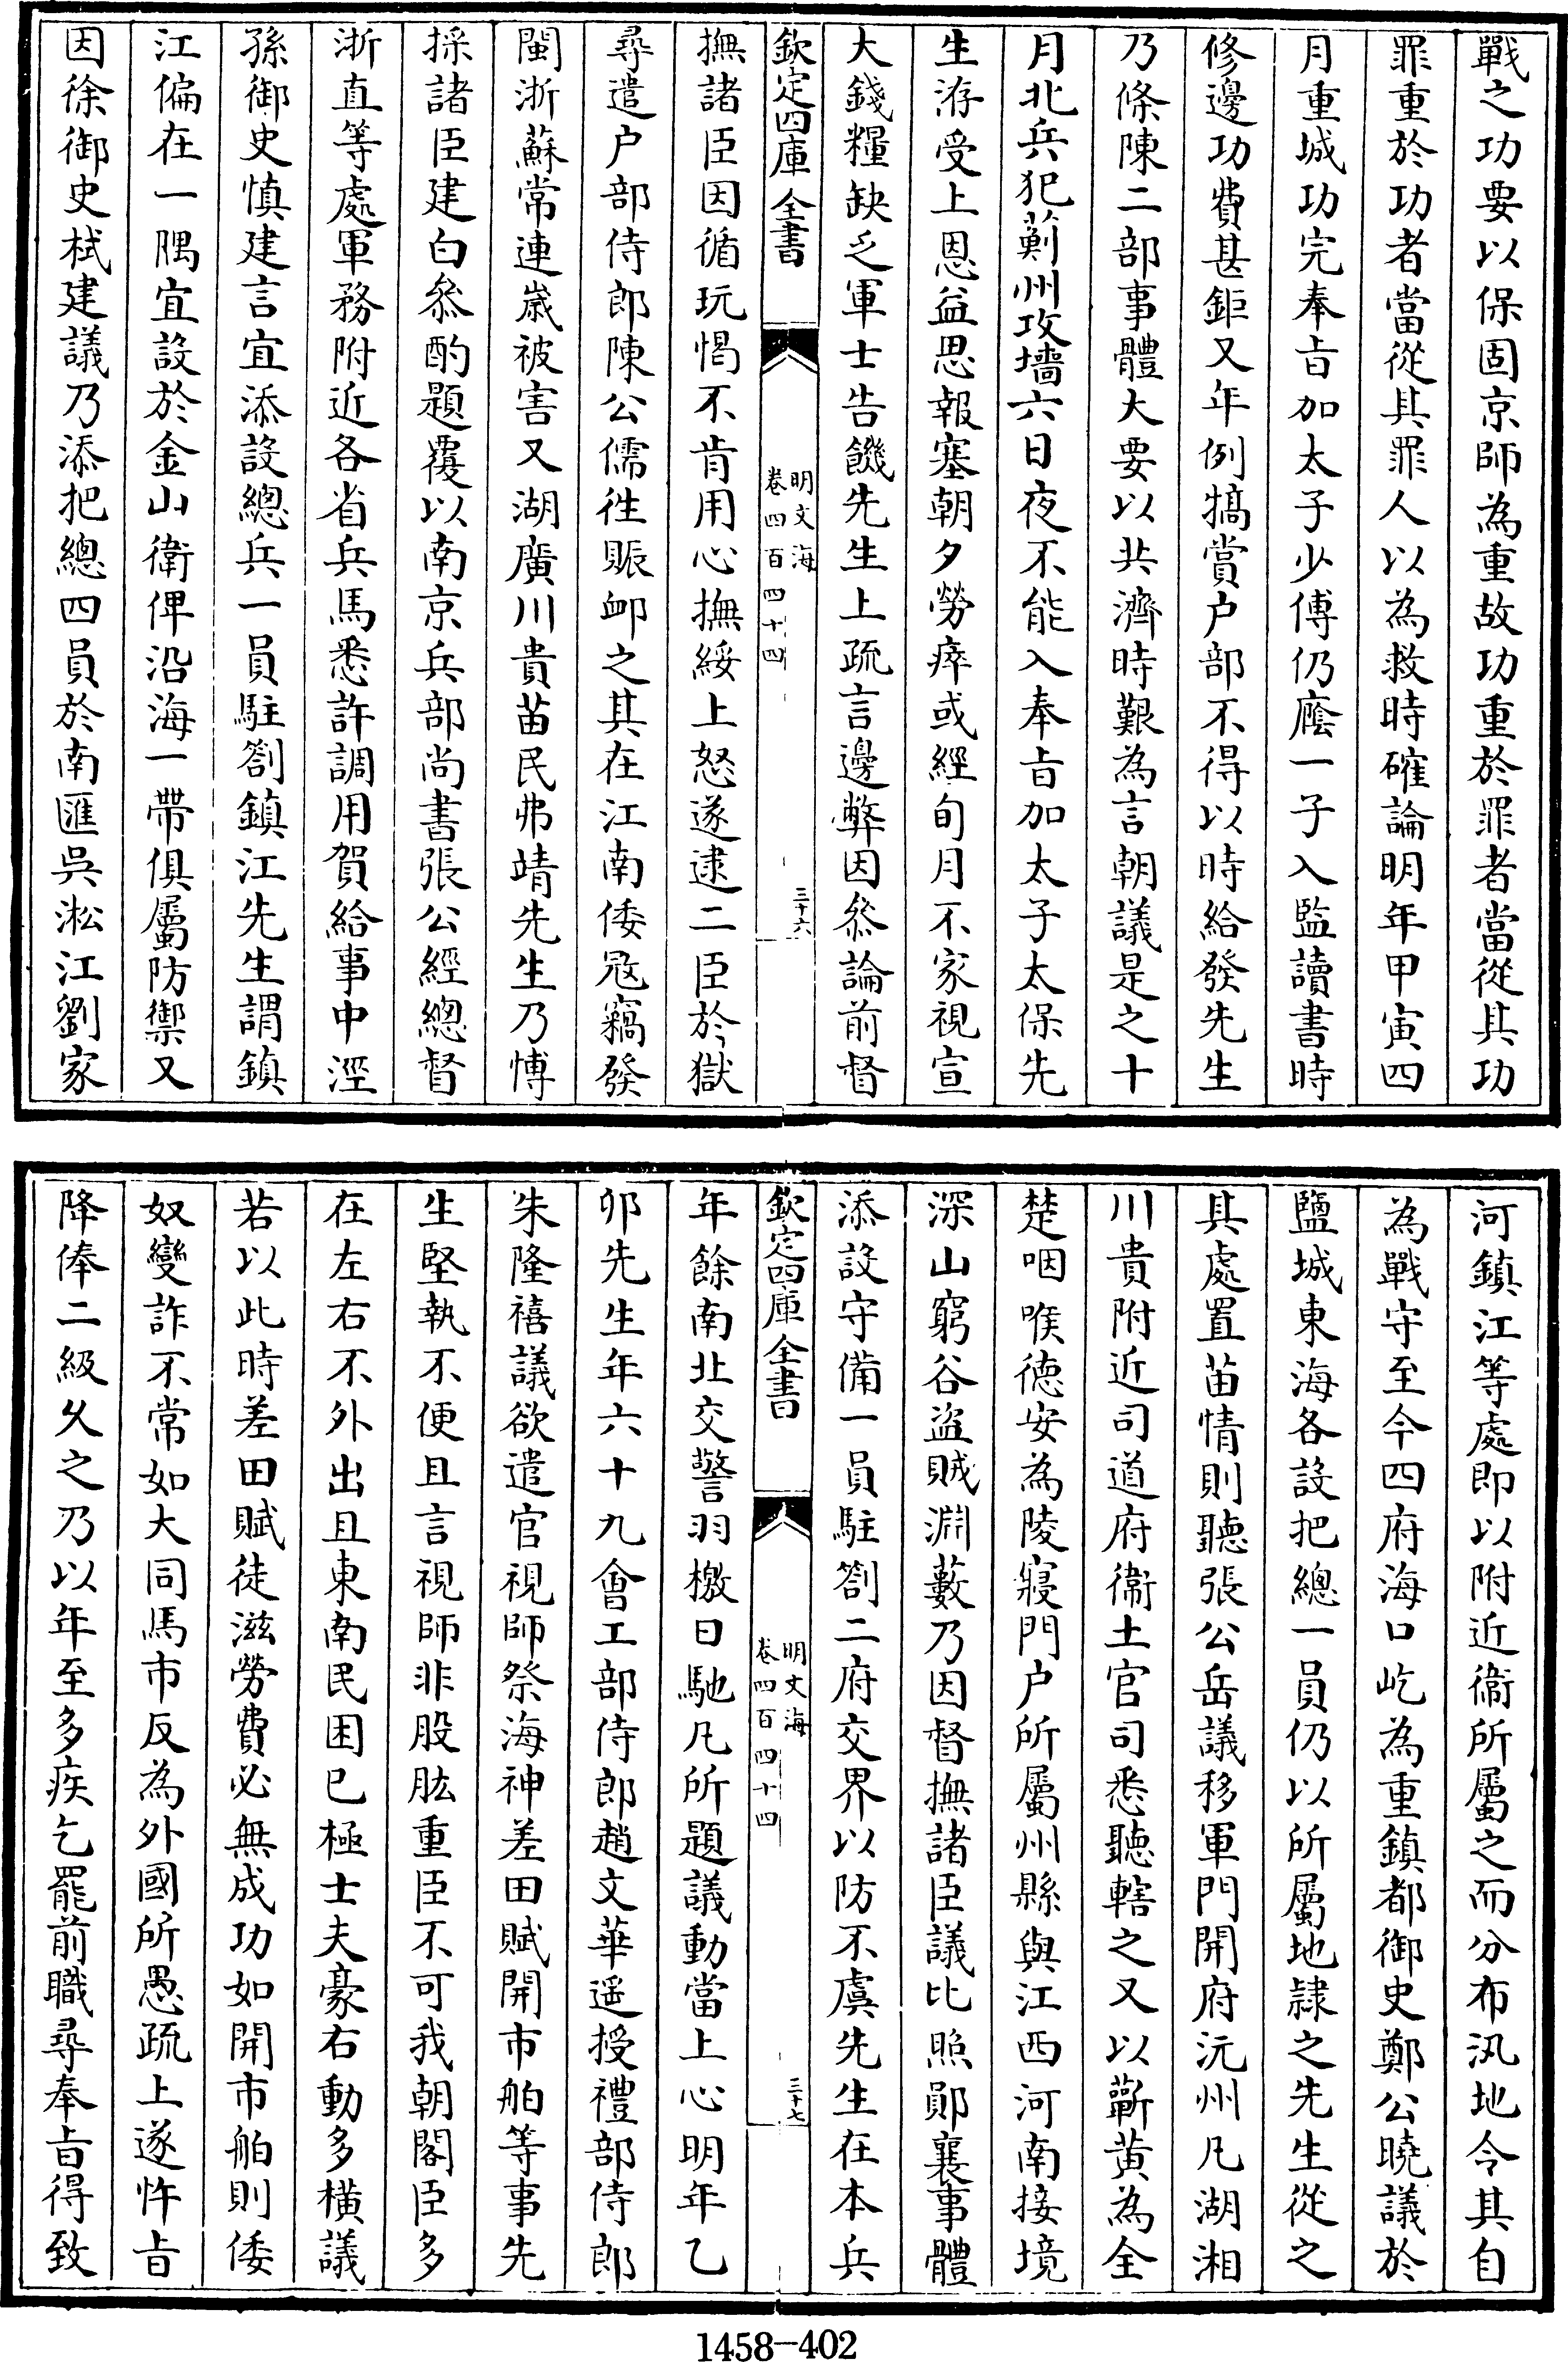 戰之功要以保固京師為重故功重於罪者當從其功
罪重於功者當從其罪人以為救時確論明年甲寅四
月重城功完奉㫖加太子少傅仍廕一子入監讀書時
修邊功費甚鉅又年例犒賞户部不得以時給發先生
乃條陳二部事體大要以共濟時艱為言朝議是之十
月北兵犯薊州攻墻六日夜不能入奉㫖加太子太保先
生洊受上恩益思報塞朝夕勞瘁或經旬月不家視宣
大錢糧缺乏軍士告饑先生上疏言邊弊因叅論前督
欽定四庫全書
明文海
卷四百四十四
三十六
撫諸臣因循玩愒不肯用心撫綏上怒遂逮二臣於獄
尋遣户部侍郎陳公儒徃賑卹之其在江南倭冦竊發
閩浙蘇常連嵗被害又湖廣川貴苗民弗靖先生乃愽
採諸臣建白叅酌題覆以南京兵部尚書張公經總督
浙直等處軍務附近各省兵馬悉許調用賀給事中涇
孫御史慎建言宜添設總兵一員駐劄鎮江先生謂鎮
江偏在一隅宜設於金山衛俾沿海一帶俱屬防禦又
因徐御史栻建議乃添把總四員於南匯吳淞江劉家
河鎮江等處即以附近衞所屬之而分布汛地令其自
為戰守至今四府海口屹為重鎮都御史鄭公曉議於
鹽城東海各設把總一員仍以所屬地隷之先生從之
其處置苗情則聽張公岳議移軍門開府沅州凡湖湘
川貴附近司道府衞土官司悉聽轄之又以蘄黄為全
楚咽喉德安為陵寢門户所屬州縣與江西河南接境
深山窮谷盜賊淵藪乃因督撫諸臣議比照鄖襄事體
添設守備一員駐劄二府交界以防不虞先生在本兵
欽定四庫全書
明文海
卷四百四十四
三十七
年餘南北交警羽檄日馳凡所題議動當上心明年乙
卯先生年六十九會工部侍郎趙文華遥授禮部侍郎
朱隆禧議欲遣官視師祭海神差田賦開市舶等事先
生堅執不便且言視師非股肱重臣不可我朝閣臣多
在左右不外出且東南民困已極士夫豪右動多横議
若以此時差田賦徒滋勞費必無成功如開市舶則倭
奴變詐不常如大同馬市反為外國所愚疏上遂忤㫖
降俸二級久之乃以年至多疾乞罷前職尋奉㫖得致
1458-402